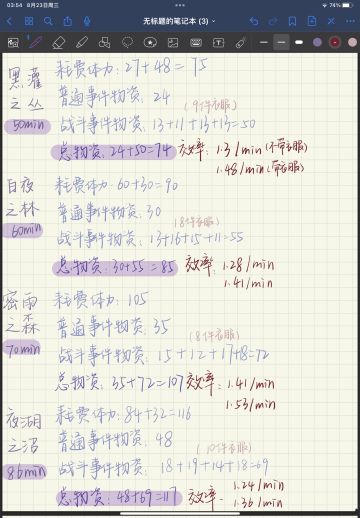 03:54 8月23日周三
74%
无标题的笔记本 (3)
黑灌之丛
50min
耗费体力:27+48=75
普通事件物资:24
(9件衣服)
战斗事件物资:13+11+13+13=50
总物资:24+50=74 效率:1.31/min(不带衣服)
1.48/min(带衣服)
白夜之林
60min
耗费体力:60+30=90
普通事件物资:30
(8件衣服)
战斗事件物资:13+16+15+11=55
总物资:30+55=85 效率:1.28/min
1.41/min
密雨之森
70min
耗费体力:105
普通事件物资:35
(8件衣服)
战斗事件物资:15+12+17+18=72
总物资:35+72=107 效率:1.41/min
1.53/min
夜湖之沼
86min
耗费体力:84+32=116
普通事件物资:48
(10件衣服)
战斗事件物资:18+19+14+18=69
总物资:48+69=117 效率:1.24/min
1.36/min